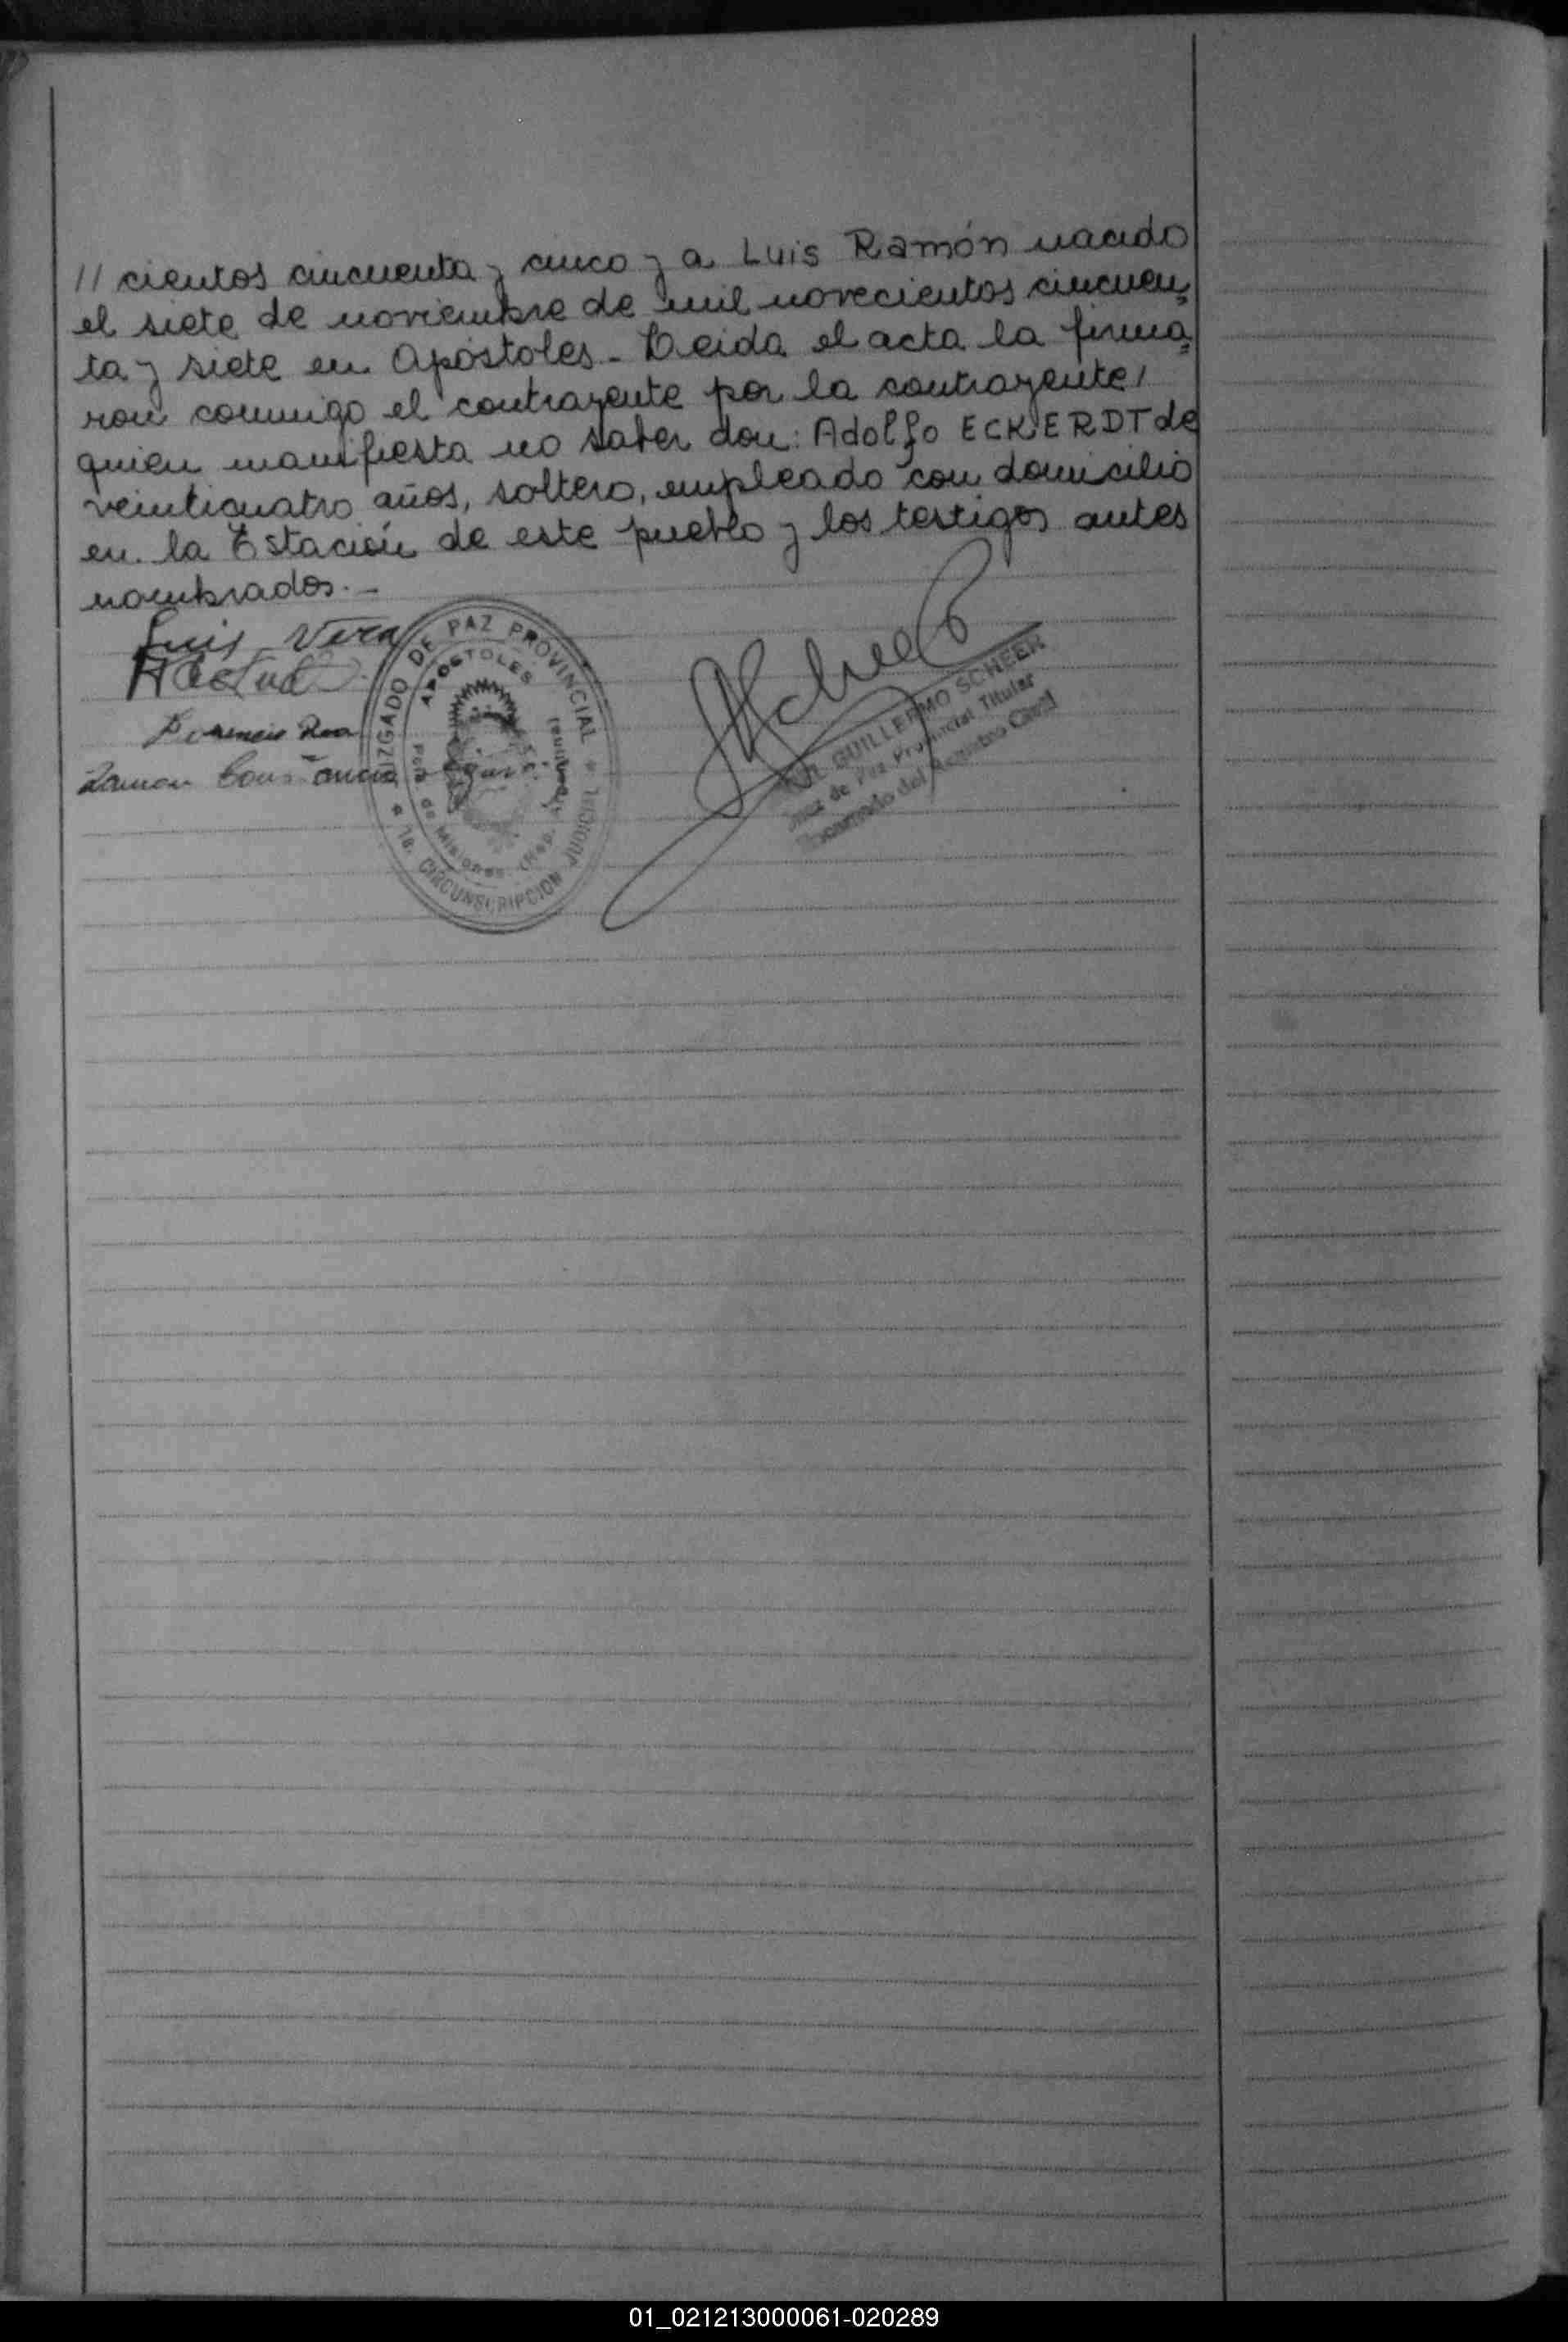 // cientos cincuenta y cinco y a Luis Ramón nacido
el siete de noviembre de mil novecientos cincuen=
ta y siete en Apóstoles - Leida el acta la firma=
ron conmigo el contrayente por la contrayente/
quien manifiesta no saber don: Adolfo ECKERDT de
veinticuatro años, soltero, empleado con domicilio
en la Estación de este pueblo y los testigos antes
nombrados. -
Luis Vera
Ramon
JUZGADO DE PAZ PROVINCIAL
APOSTOLES
Pcia. de Misiones (Rep. Argentina)
1a. CIRCUNSCRIPCION JUDICIAL
GUILLERMO SCHEER
Juez de Paz Provincial Titular
Encargado del Registro Civil
01_021213000061-020289